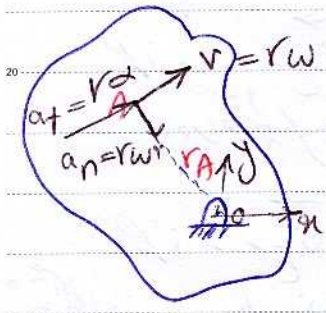 20
v = rω
a_t = rα
A
a_n = rω²
r_A
y
O
x